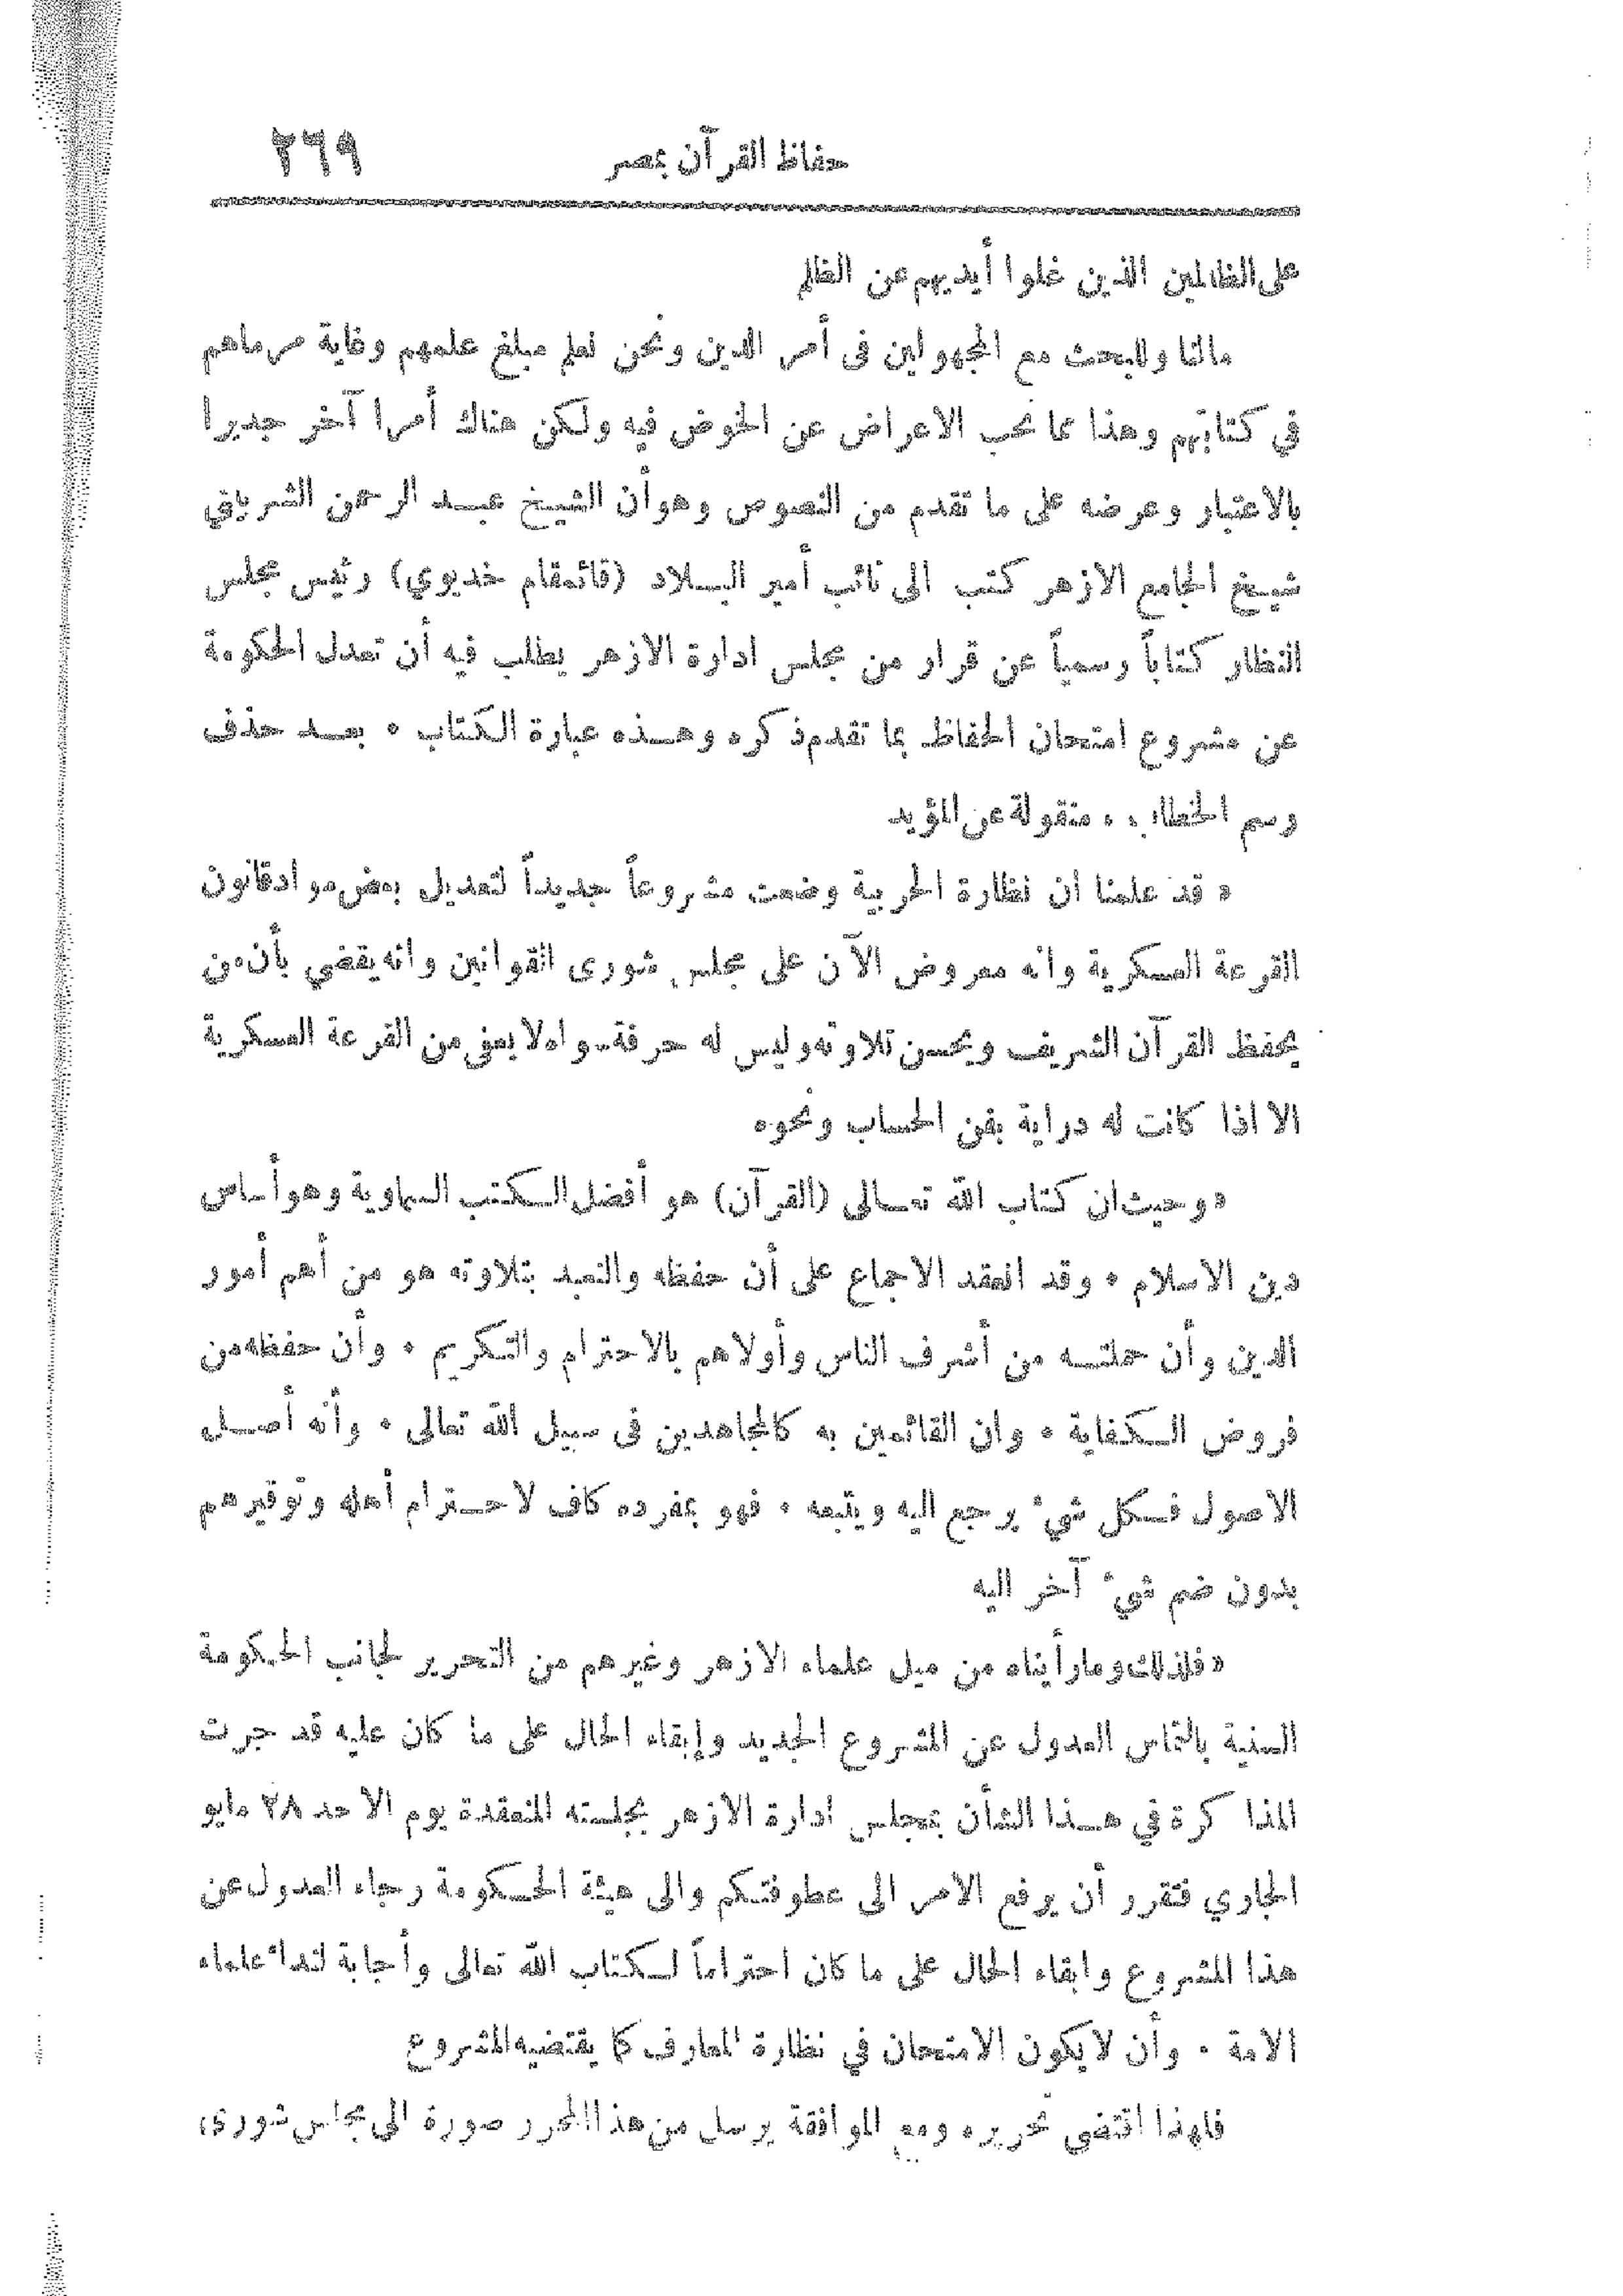 حفاظ القرآن بمصر ٢٦٩
على الظالمين الذين غلوا أيديهم عن الظلم
مالنا وللبحث مع المجهولين فى أمر الدين ونحن نعلم مبلغ علمهم وغاية مرماهم
في كتابتهم وهذا مما نحب الاعراض عن الخوض فيه ولكن هناك أمرا آخر جديرا
بالاعتبار وعرضه على ما تقدم من النصوص وهو أن الشيخ عبد الرحمن الشربيني
شيخ الجامع الازهر كتب الى نائب أمير البلاد (قائمقام خديوي) رئيس مجلس
النظار كتاباً رسمياً عن قرار من مجلس ادارة الازهر يطلب فيه أن تعدل الحكومة
عن مشروع امتحان الحفاظ بما تقدم ذكره وهذه عبارة الكتاب ٠ بعد حذف
رسم الخطاب ٠ منقولة عن المؤيد
« قد علمنا ان نظارة الحربية وضعت مشروعاً جديداً لتعديل بعض مواد قانون
القرعة العسكرية وانه معروض الآن على مجلس شورى القوانين وانه يقضي بأن من
يحفظ القرآن الشريف ويحسن تلاوته وليس له حرفة سواه لا يعفى من القرعة العسكرية
الا اذا كانت له دراية بفن الحساب ونحوه
« وحيث ان كتاب الله تعالى (القرآن) هو أفضل الكتب السماوية وهو أساس
دين الاسلام ٠ وقد انعقد الاجماع على أن حفظه والتعبد بتلاوته هو من أهم أمور
الدين وأن حملته من أشرف الناس وأولاهم بالاحترام والتكريم ٠ وأن حفظه من
فروض الكفاية ٠ وان القائمين به كالمجاهدين فى سبيل الله تعالى ٠ وأنه أصل
الاصول فكل شيء يرجع اليه ويتبعه ٠ فهو بمفرده كاف لاحترام أهله وتوقيرهم
بدون ضم شيء آخر اليه
« فلذلك وما رأيناه من ميل علماء الازهر وغيرهم من التحرير لجانب الحكومة
السنية بالتماس العدول عن المشروع الجديد وإبقاء الحال على ما كان عليه قد جرت
المذاكرة في هذا الشأن بمجلس ادارة الازهر بجلسته المنعقدة يوم الاحد ٢٨ مايو
الجاري فتقرر أن يرفع الامر الى عطوفتكم والى هيئة الحكومة رجاء العدول عن
هذا المشروع وابقاء الحال على ما كان احتراماً لكتاب الله تعالى وأجابة لنداء علماء
الامة ٠ وأن لا يكون الامتحان في نظارة المعارف كما يقتضيه المشروع
فلهذا اقتضى تحريره ومع الموافقة يرسل من هذا المحرر صورة الى مجلس شورى